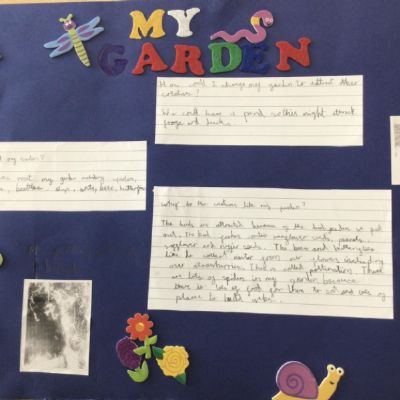 MY
GARDEN
How could I change my garden to attract other
creatures?
We could have a pond, so this might attract
frogs and ducks.
my garden?
my garden including spiders,
beetles, slugs, ants, bees, butterflies
Why do the creatures like my garden?
The birds are attracted because of the bird feeders we put
out. The bird feeders contain sunflower seeds, peanuts,
safflower and niger seeds. The bees and butterflies
like to collect nectar from our flowers including
our strawberries. This is called pollination. There
are lots of spiders in my garden because
there is lots of food for them to eat and lots of
places to build webs.